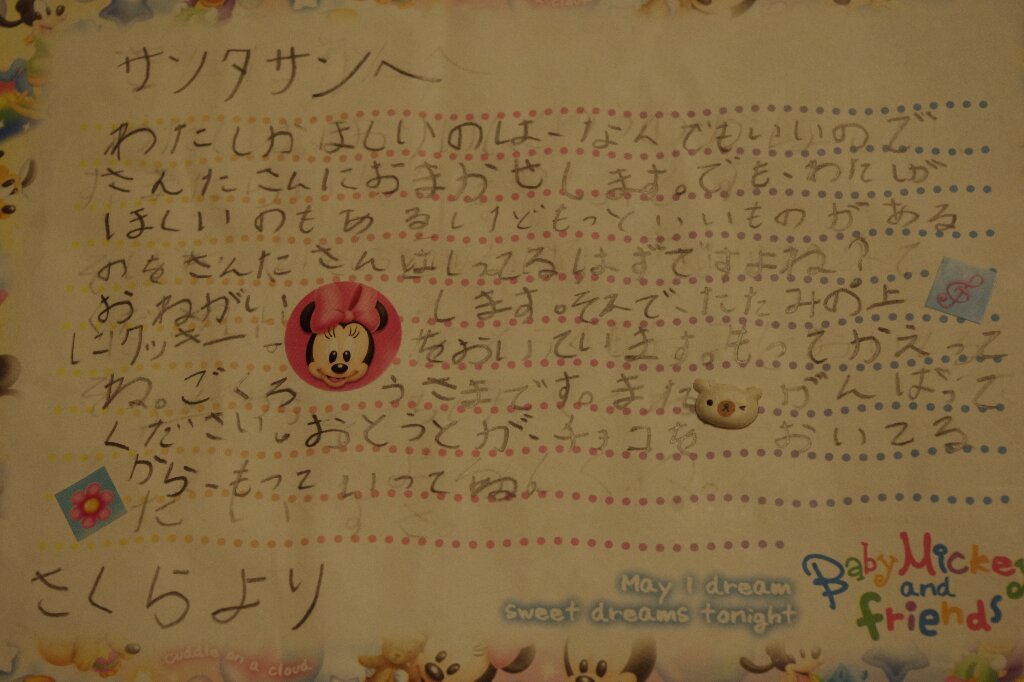 サンタサンへ
わたしがほしいのは、なんでもいいので
さんたさんにおまかせします。でも、わたしが
ほしいのもあるけどもっといいものがある
のをさんたさんはしってるはずですよね?
おねがいします。そんで、たたみの上
にクッキーをおいています。もってかえって
ね。ごくろうさまです。またがんばって
ください。おとうとが、チョコをおいてる
から、もっていってね。
さくらより
May I dream
sweet dreams tonight
Baby Mickey
and
friends
Cuddle on a cloud